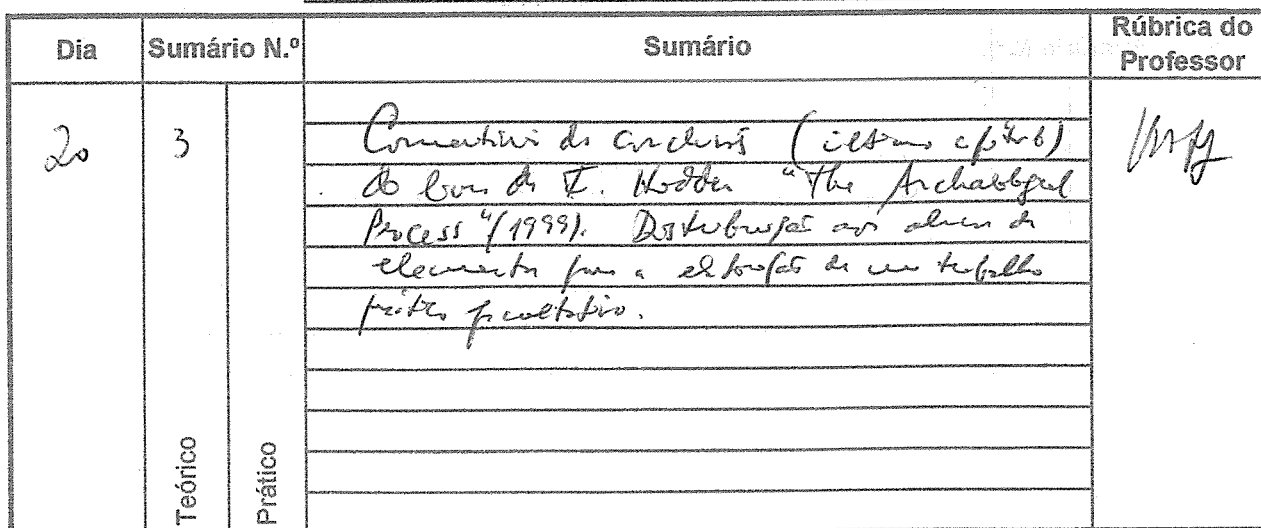 Dia Sumário N.º Sumário Rúbrica do Professor
20 3 Comentário da conclusão (último capítulo)
do livro de I. Hodder "The Archaeological
Process" (1999). Distribuição aos alunos de
elementos para a elaboração de um trabalho
prático facultativo.
Teórico
Prático